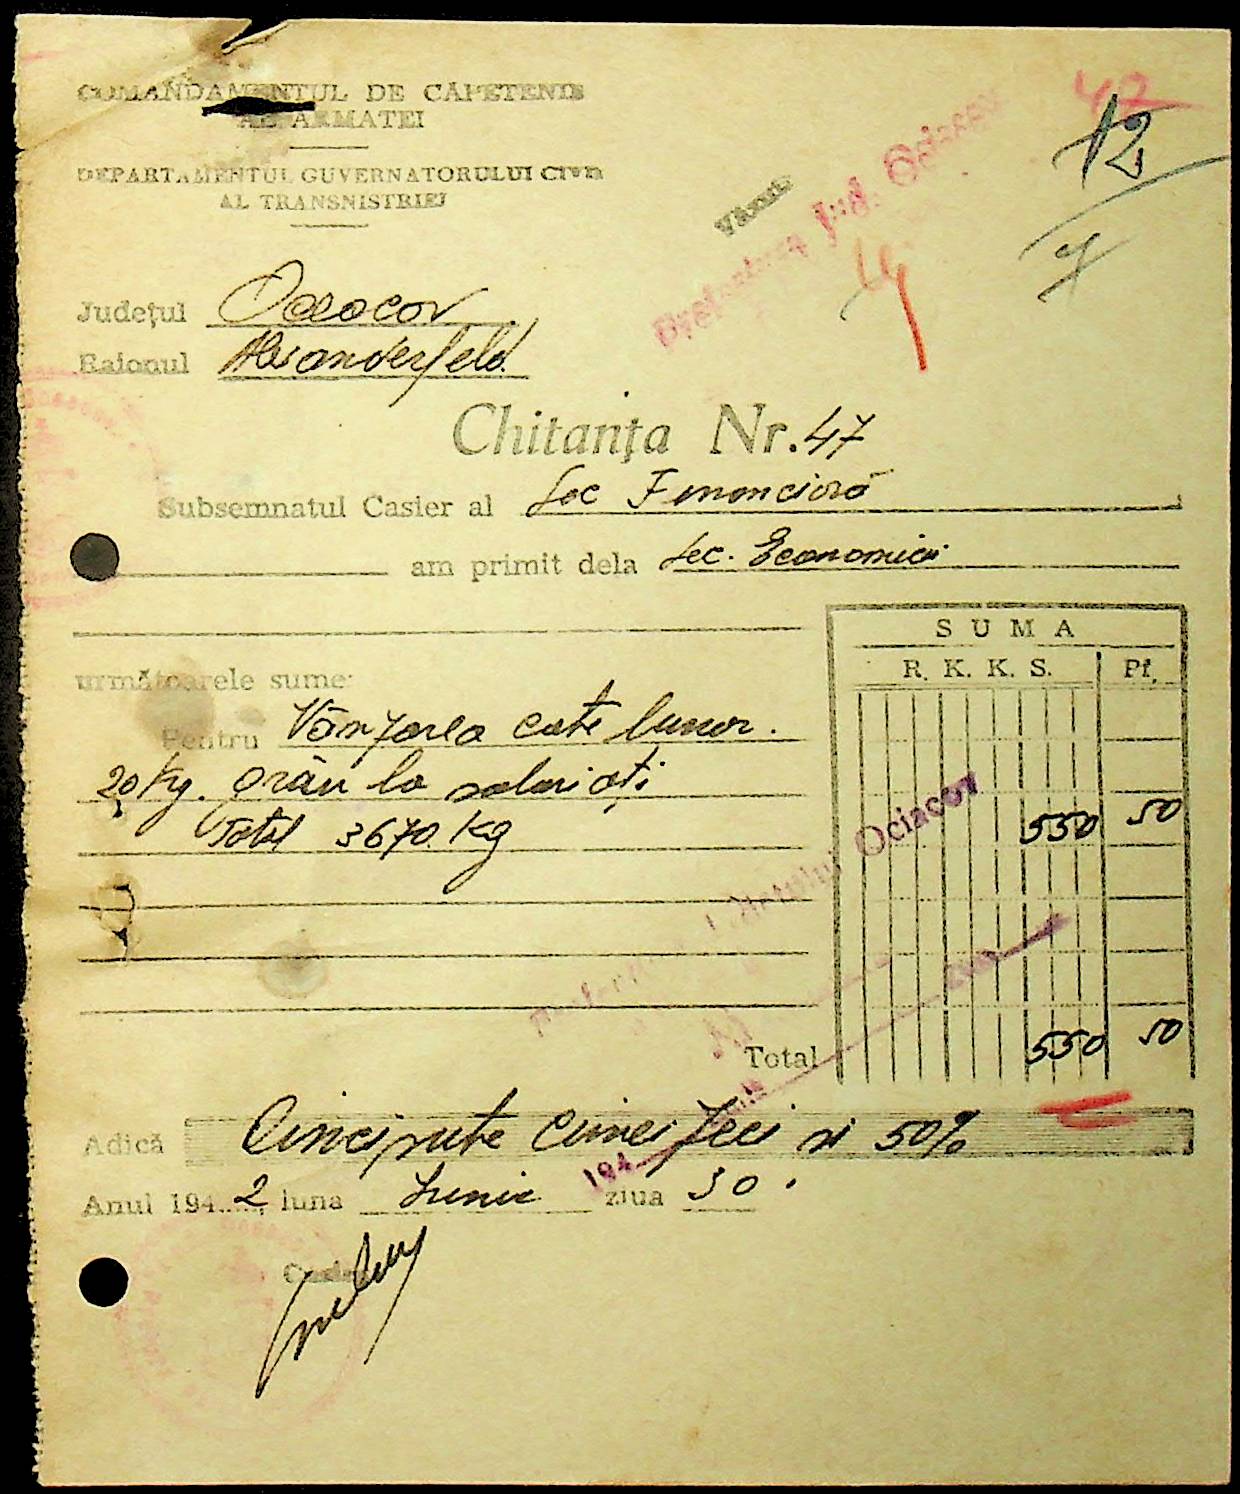 COMANDAMENTUL DE CĂPETENIE
AL ARMATEI
DEPARTAMENTUL GUVERNATORULUI CIVIL
AL TRANSNISTRIEI
42
12
7
Văzut
Prefectura Jud. Ociacov
Județul Oceacov
Raionul Alexanderfeld.
Chitanța Nr. 47
Subsemnatul Casier al Sec Financiară
am primit dela Sec. Economică
SUMA
R. K. K. S. Pf.
următoarele sume:
Pentru Vânzarea cote lunar.
20 Kg. grâu la salariați
Total 3670 Kg 550 50
Ociacov
Total 550 50
Adică Cincisute cincizeci si 50%
194
Anul 1942 luna Iunie ziua 30.
Casier